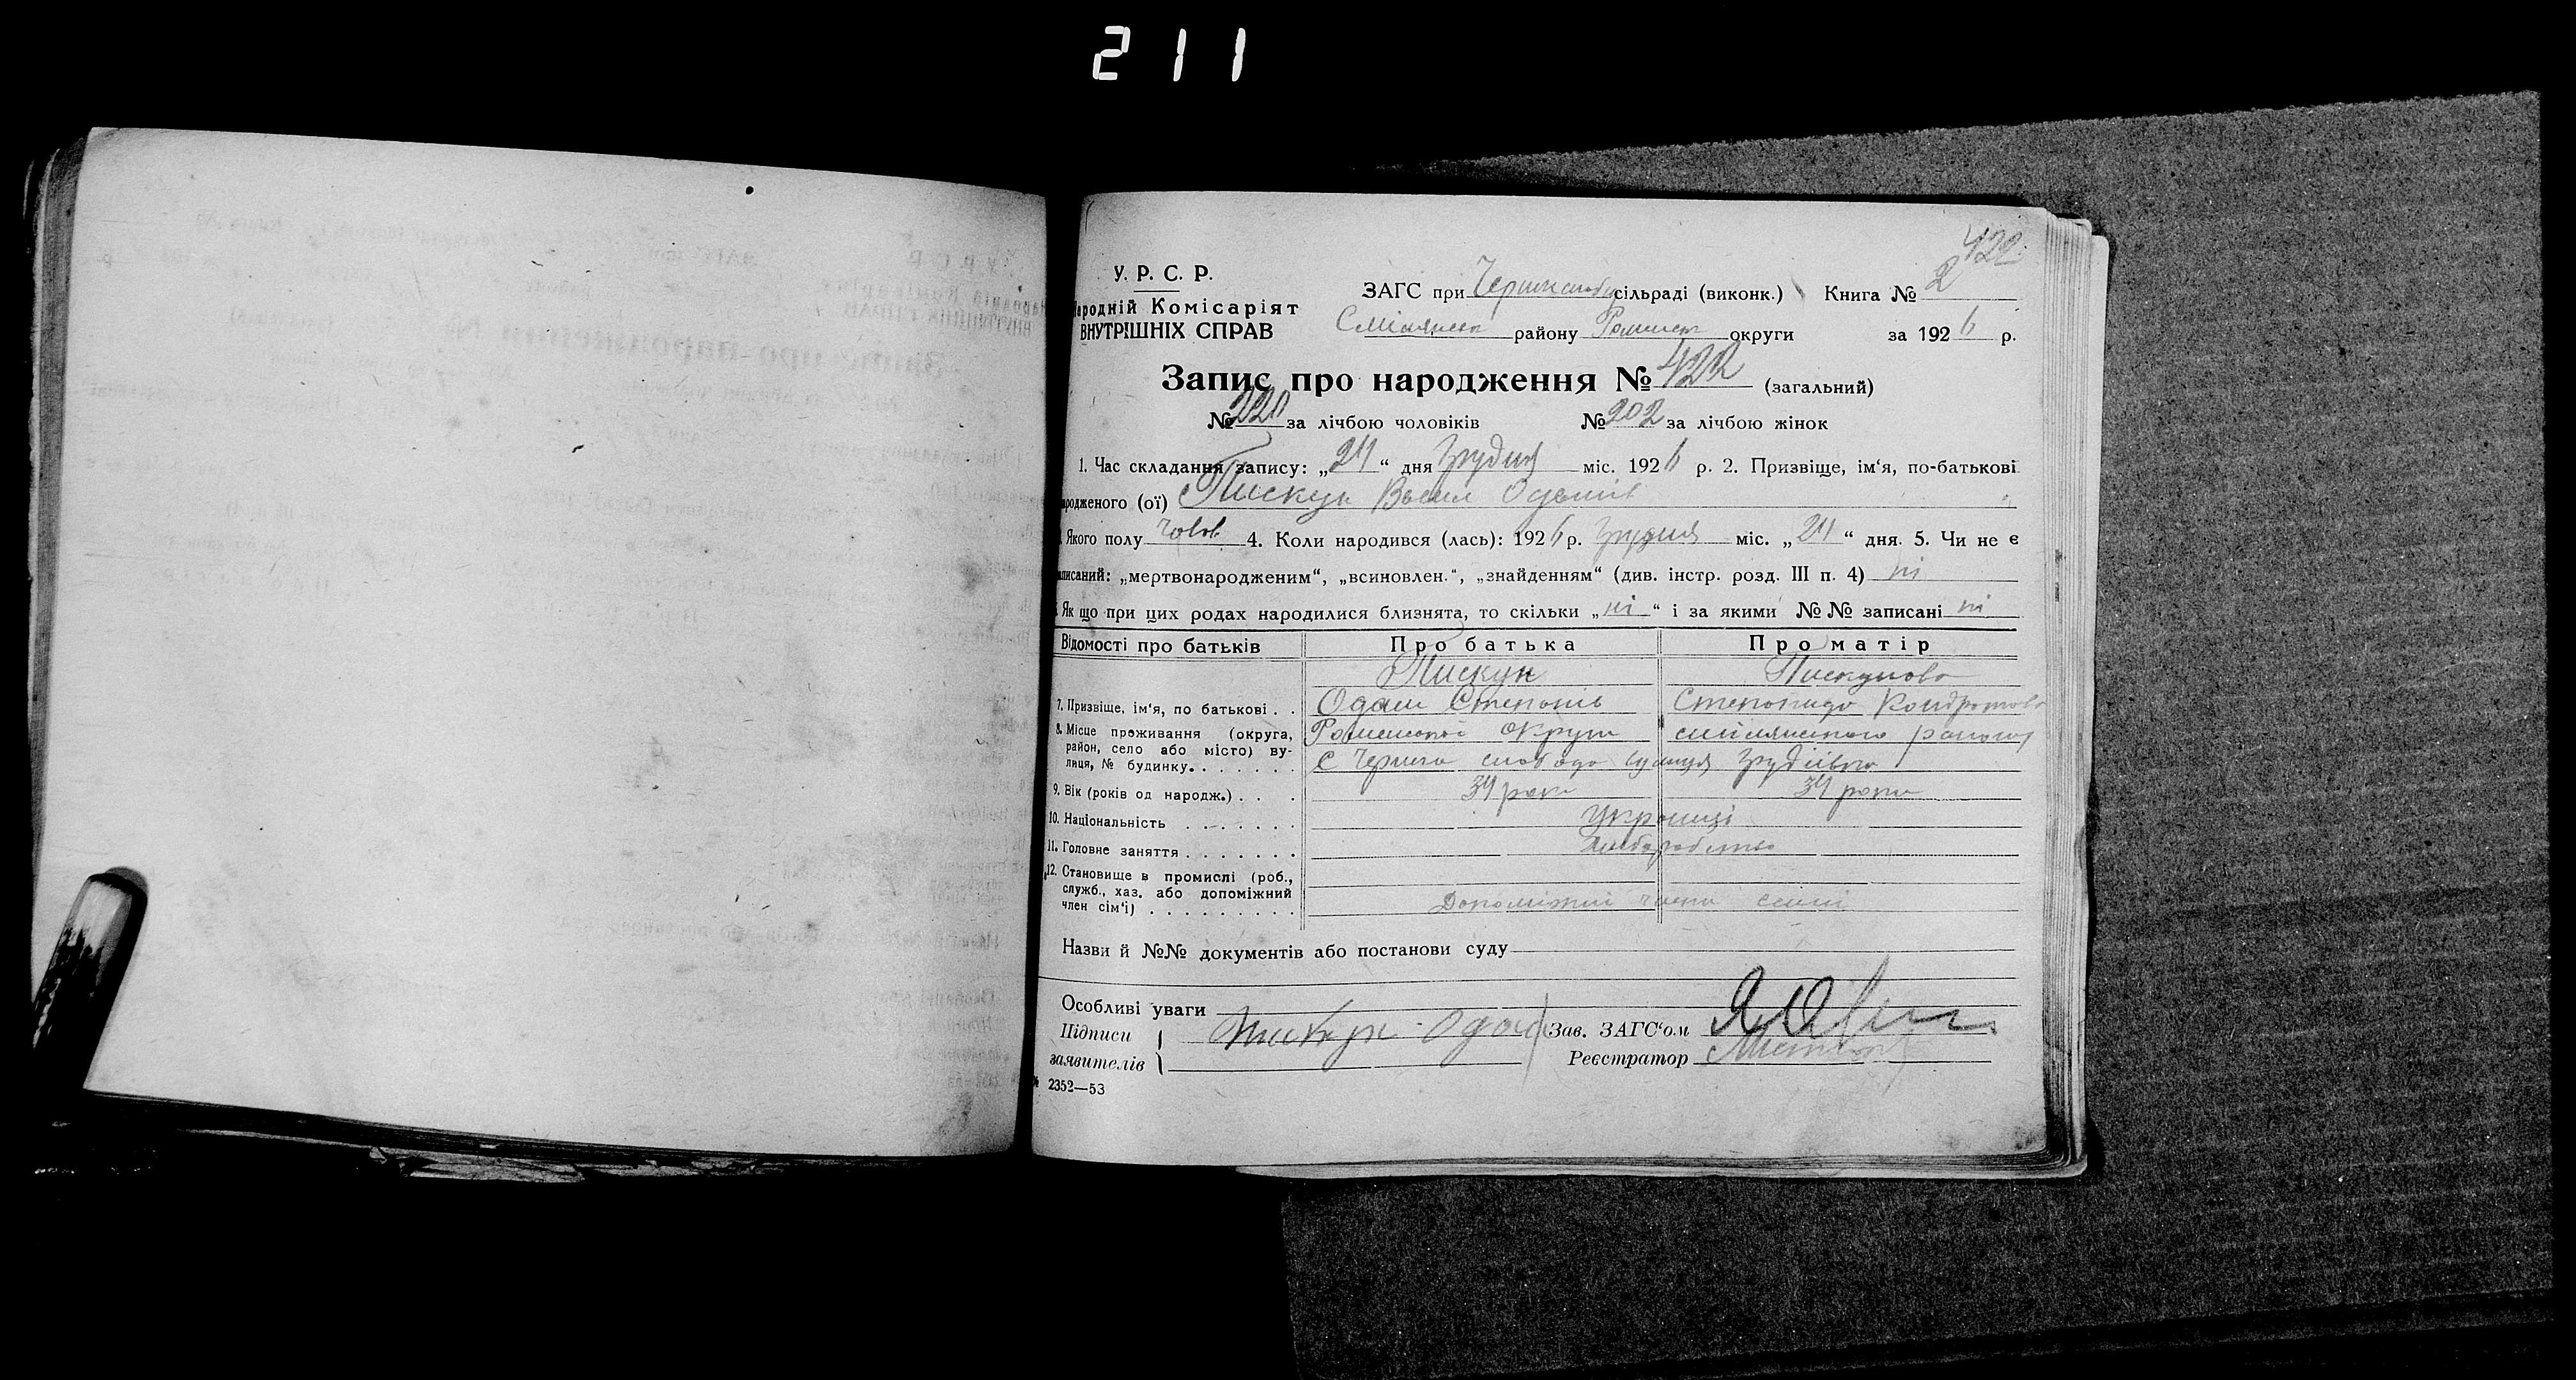 211
422
У. Р. С. Р.
Народній Комісаріят
ВНУТРІШНІХ СПРАВ
ЗАГС при сільраді (виконк.) Книга № 2
району округи за 1926 р.
Запис про народження № 422 (загальний)
№ 220 за лічбою чоловіків № 202 за лічбою жінок
1. Час складання запису: „24“ дня Грудня міс. 1926 р. 2. Призвіще, ім‘я, по-батькові
родженого (ої) Пискун Васил Одамів
Якого полу Чолов 4. Коли народився (лась): 1926 р. Грудня міс. „24“ дня. 5. Чи не є
писаний: „мертвонародженим“, „всиновлен.“, „знайденням“ (див. інстр. розд. III п. 4) ні
Як що при цих родах народилися близнята, то скільки „ні“ і за якими №№ записані ні
Відомості про батьків Про батька Про матір
Пискун Пискунова
7. Призвіще, ім‘я, по батькові . . Одам Степонів Степонида Кондротова
8. Місце проживання (округа, Роменської округи смілянського району
район, село або місто) ву-
лиця, № будинку. . . . . . . с Черніга слобода вулиця
9. Вік (років од народж.) . . . 34 роки 34 роки
10. Національність . . . . . . . Укроинці
11. Головне заняття . . . . . . . Хлиборобство
12. Становище в промислі (роб.,
служб., хаз. або допоміжний
член сім‘ї) . . . . . . . . . Допоміжні члени семі
Назви й №№ документів або постанови суду
Особливі уваги
Підписи Пискун Одам Зав. ЗАГС‘ом
заявителів Реєстратор
2352—53